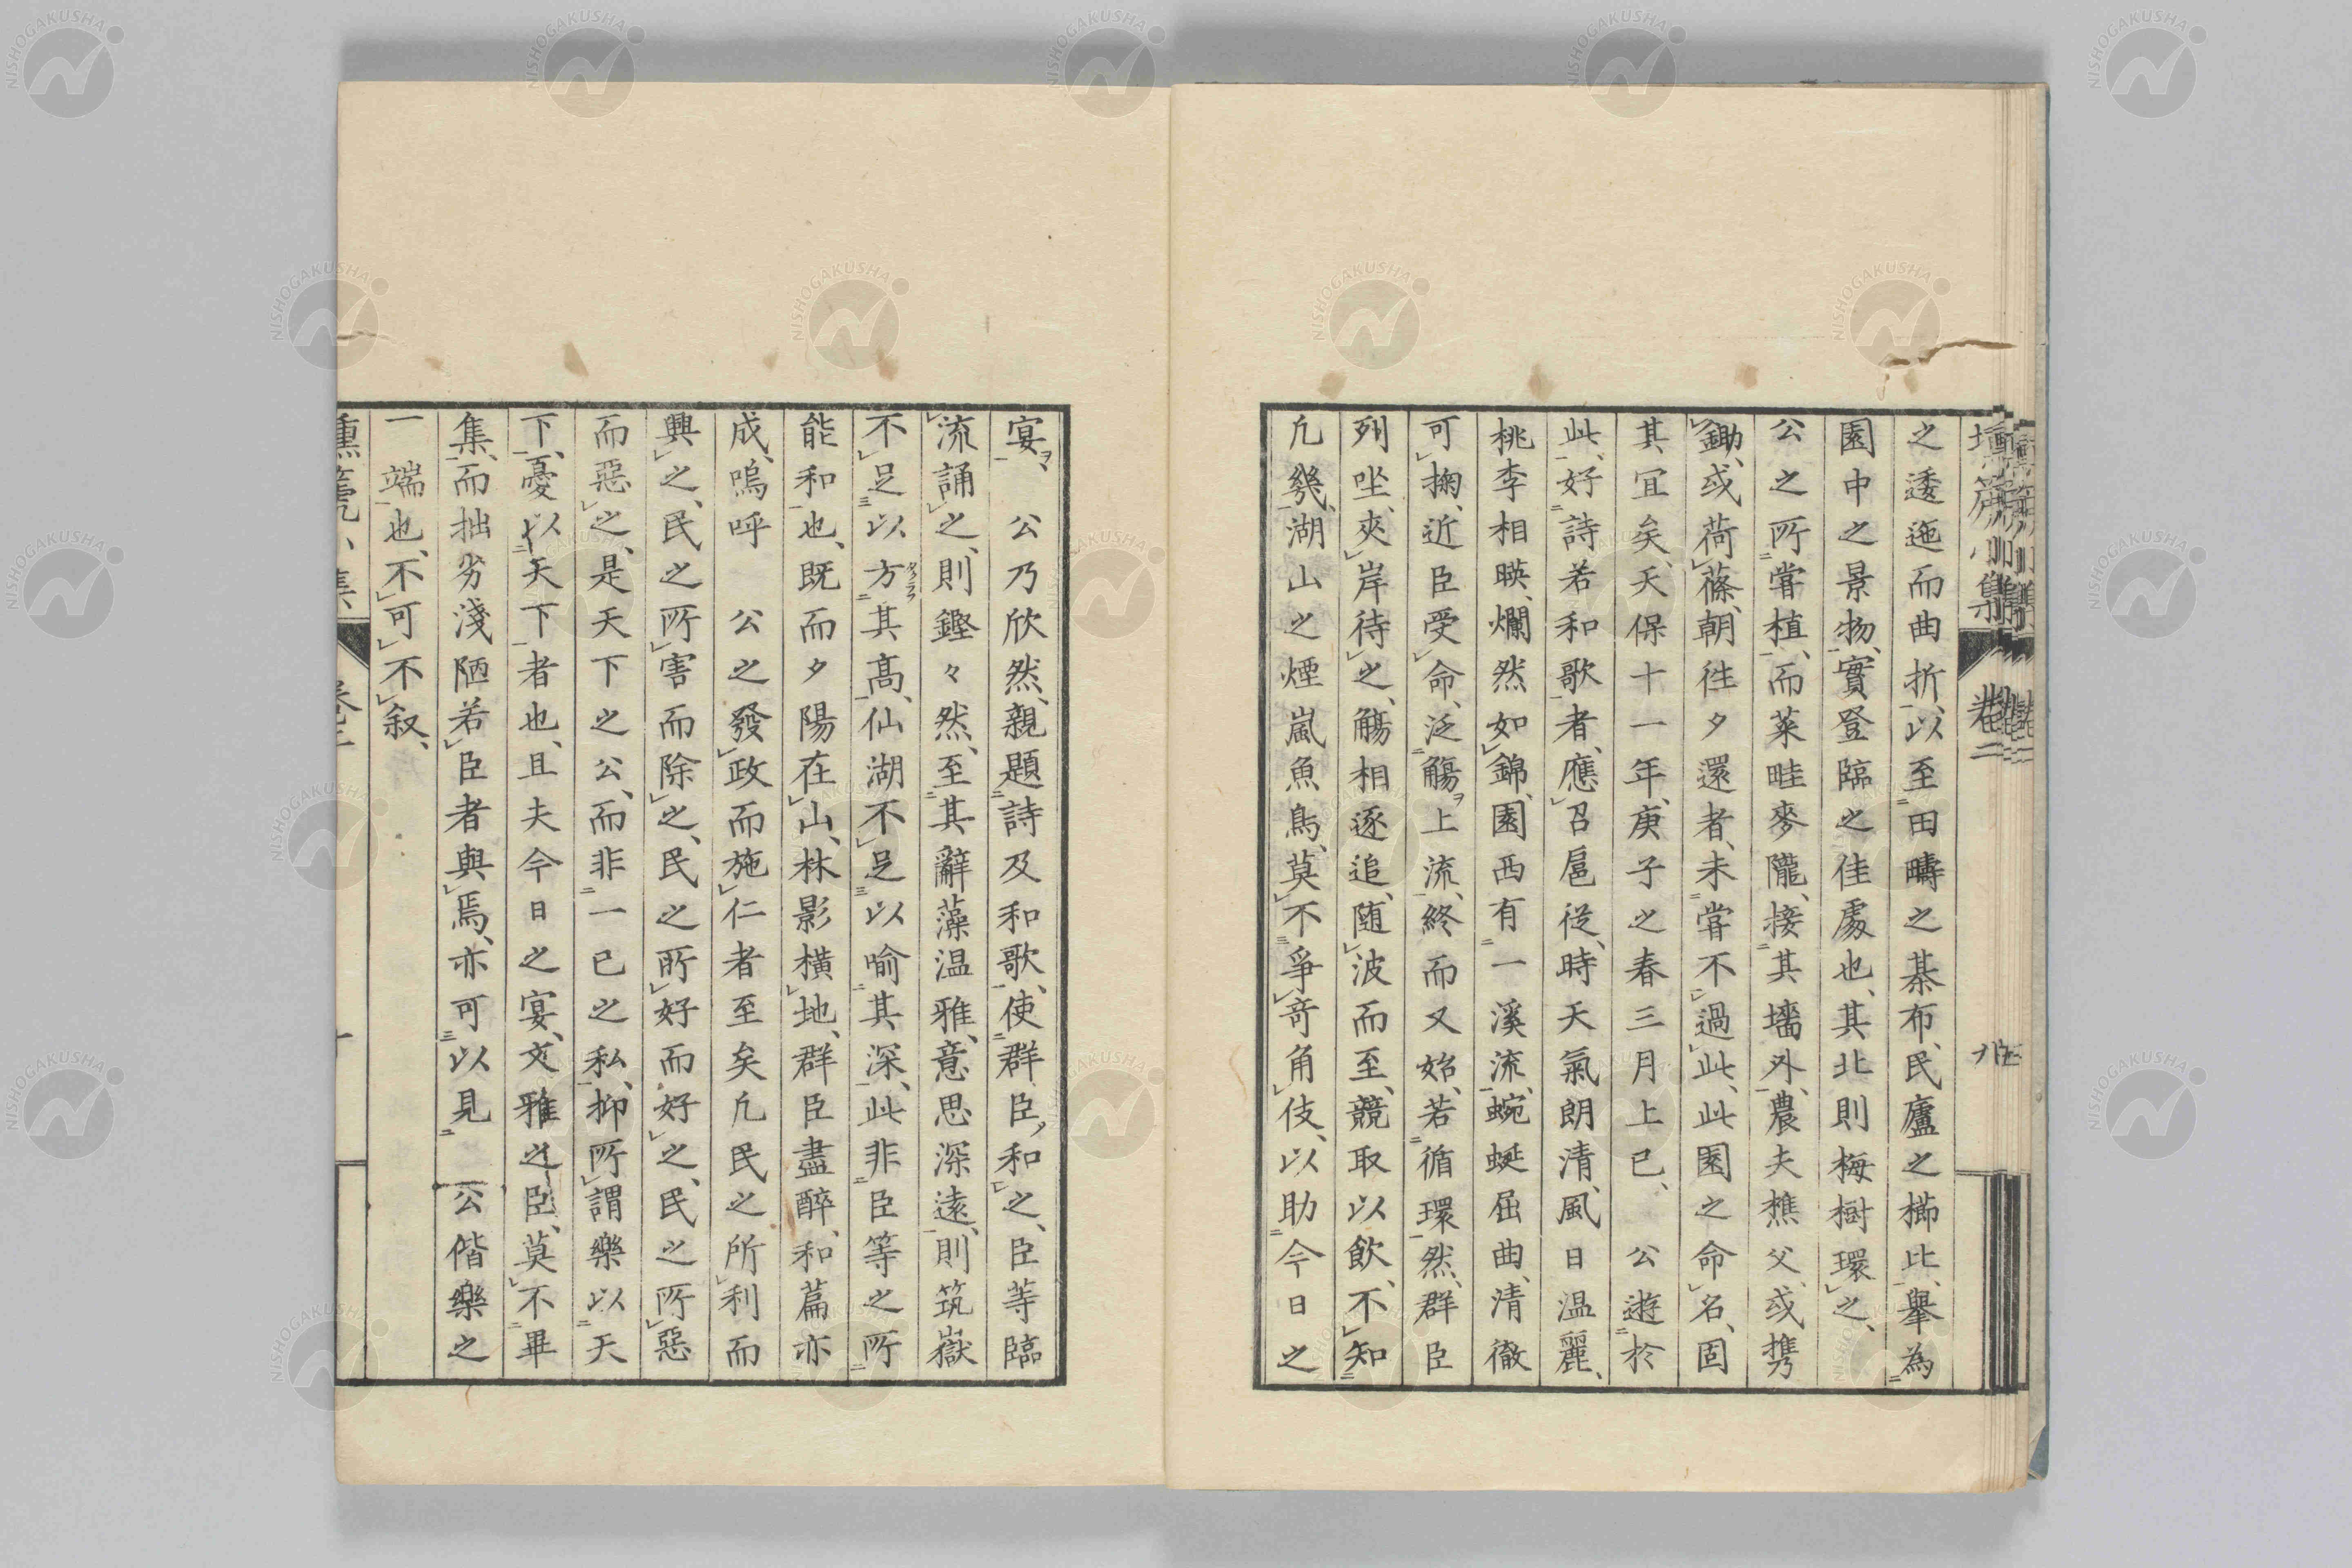 之逶迤而曲折、以至田疇之棊布、民廬之櫛比、擧為
園中之景物、實登臨之佳處也、其北則梅樹環之、
公之所嘗植、而菜畦麥隴、接其墻外、農夫樵父、或携
鋤、或荷蓧、朝往夕還者、未嘗不過此、此園之命名、固
其宜矣、天保十一年、庚子之春三月上巳、公遊於
此、好詩若和歌者、應召扈從、時天氣朗清、風日温麗、
桃李相暎、爛然如錦、園西有一溪流、蜿蜒屈曲、清徹
可掬、近臣受命、泛觴上流、終而又始、若循環然、群臣
列坐、夾岸待之、觴相逐追、随波而至、競取以飲、不知
凢幾、湖山之煙嵐魚鳥、莫不爭竒角伎、以助今日之
宴、公乃欣然、親題詩及和歌、使群臣和之、臣等臨
流誦之、則鏗々然、至其辭藻温雅、意思深遠、則筑嶽
不足以方其髙、仙湖不足以喻其深、此非臣等之所
能和也、既而夕陽在山、林影橫地、群臣盡醉、和篇亦
成、嗚呼公之發政而施仁者至矣凢民之所利而
興之、民之所害而除之、民之所好而好之、民之所惡
而惡之、是天下之公、而非一己之私、抑所謂樂以天
下、憂以天下者也、且夫今日之宴、文雅之臣、莫不畢
集、而拙劣淺陋若臣者與焉、亦可以見公偕樂之
一端也、不可不叙、